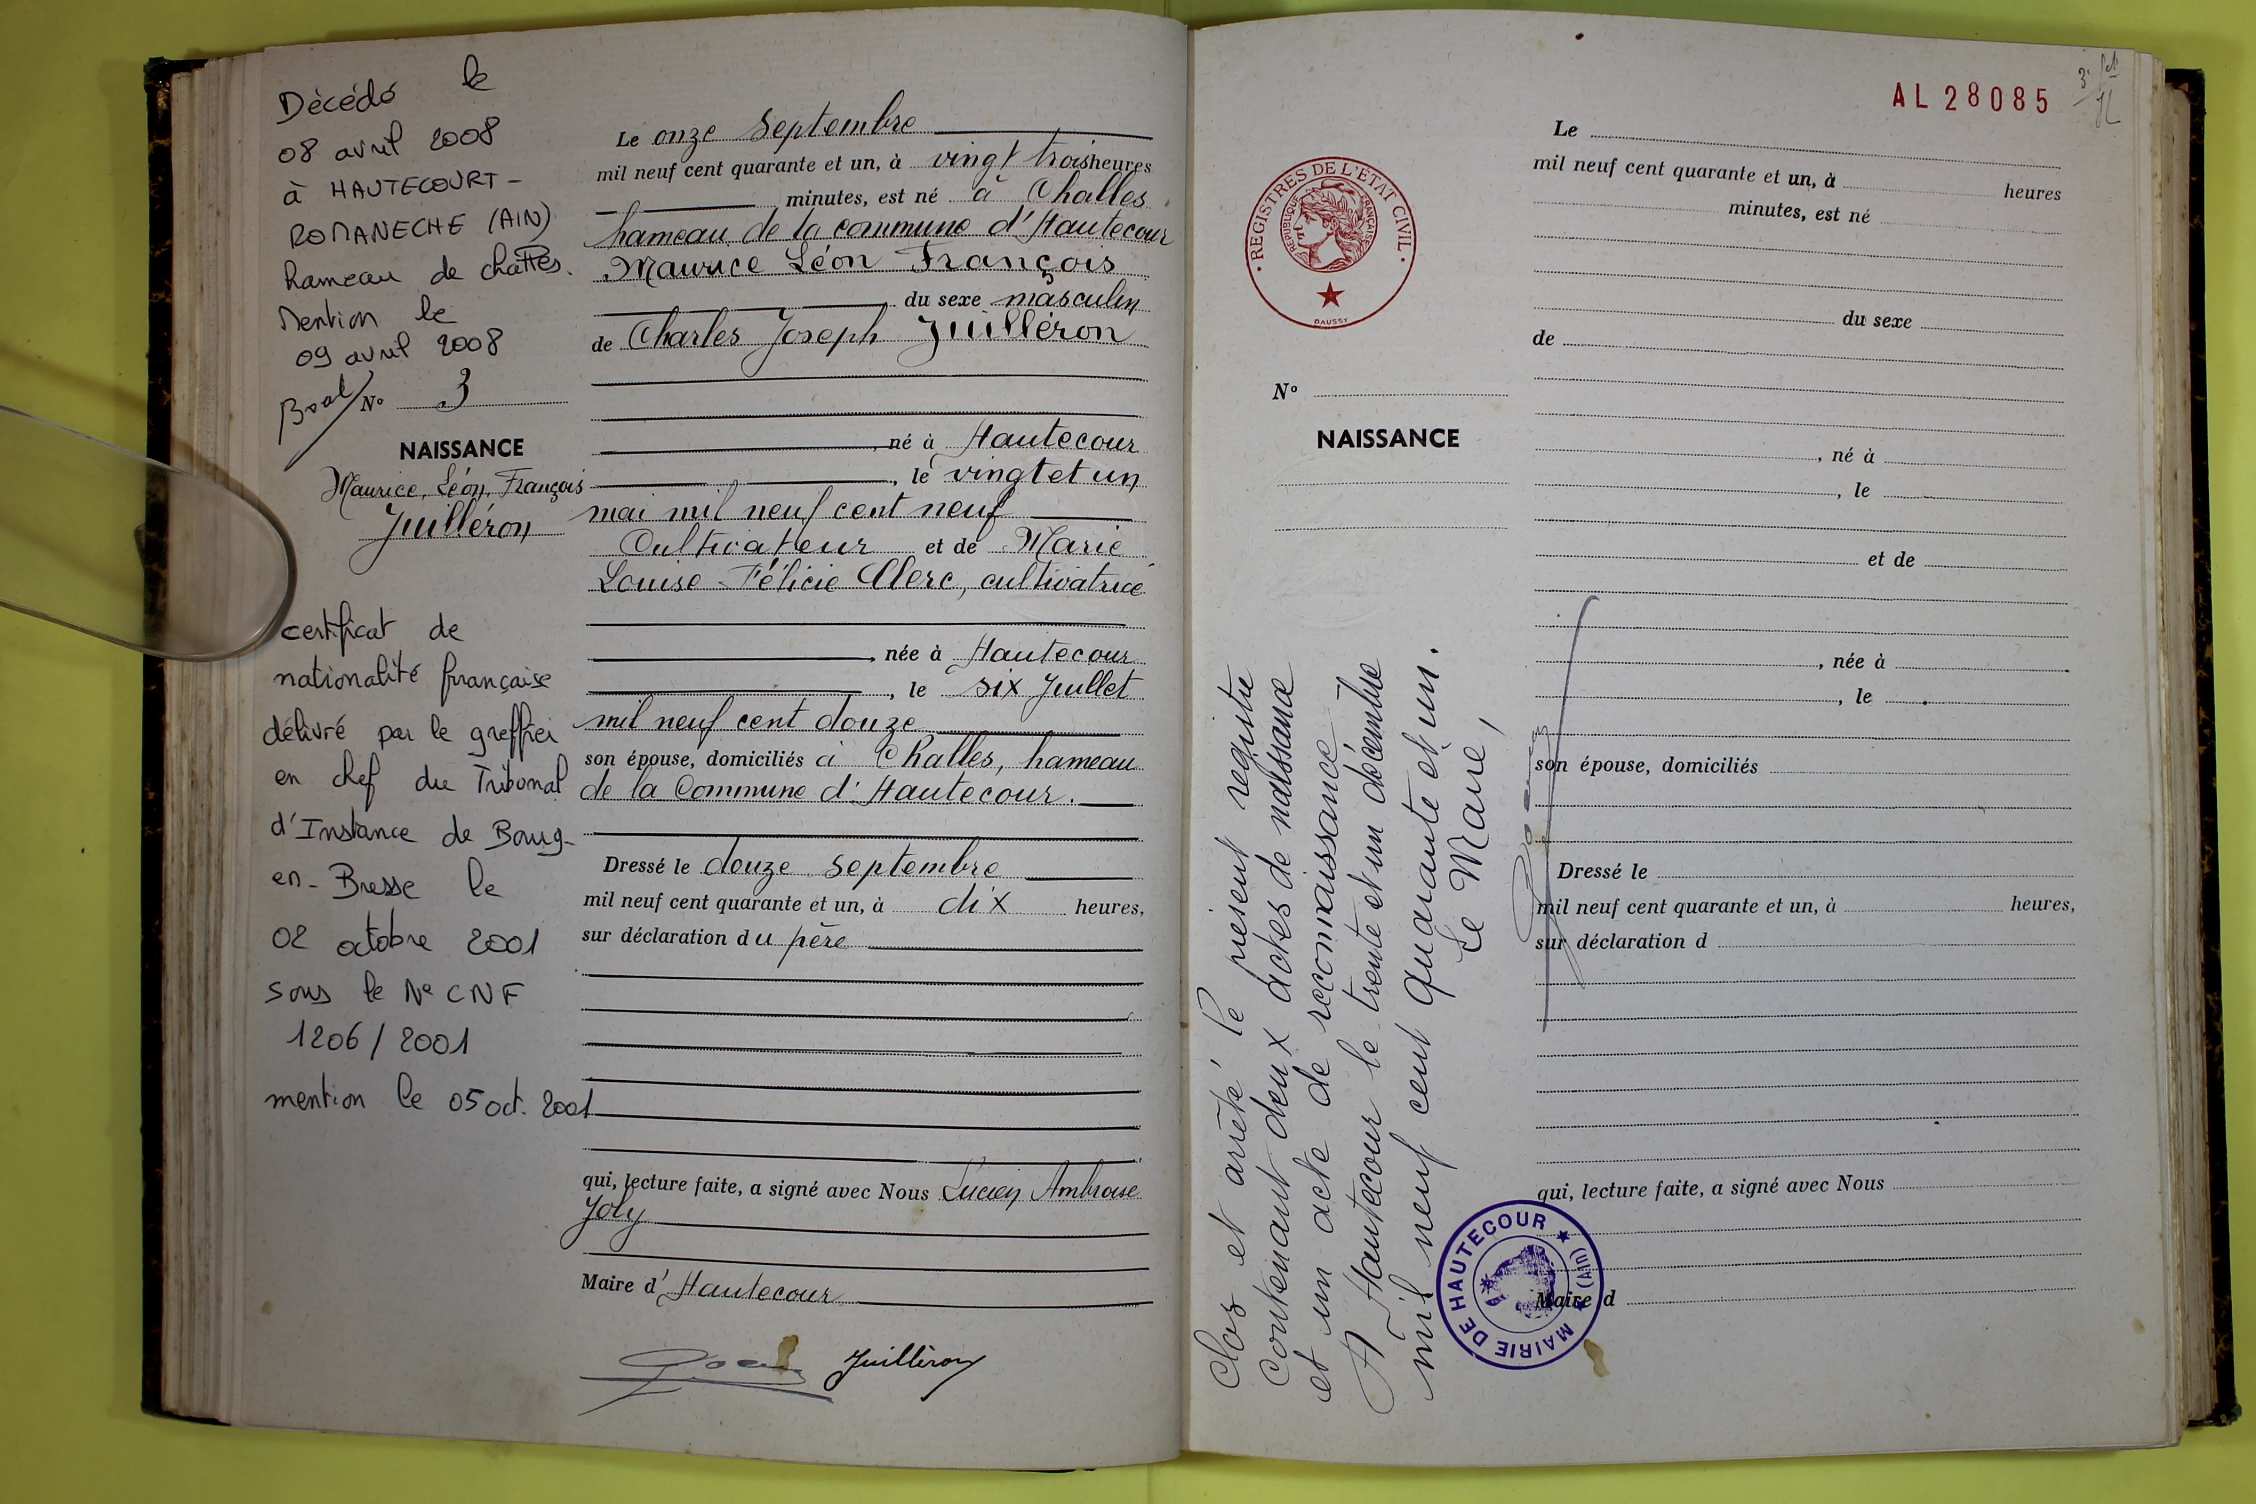 Décédé le
08 avril 2008
à HAUTECOURT-
ROMANECHE (AIN)
hameau de challes.
Mention le
09 avril 2008
No 3
NAISSANCE
Maurice, Léon, François
Juilléron
certificat de
nationalité française
délivré par le greffier
en chef du Tribunal
d'Instance de Bourg-
en-Bresse le
02 octobre 2001
sous le No CNF
1206/2001
mention le 05 oct. 2001
Le onze septembre
mil neuf cent quarante et un, à vingt trois heures
minutes, est né à Challes
hameau de la commune d'Hautecour
Maurice Léon François
du sexe masculin
de Charles Joseph Juilléron
, né à Hautecour
, le vingt et un
mai mil neuf cent neuf
Cultivateur et de Marie
Louise Félicie Clerc, cultivatrice
, née à Hautecour
, le six Juillet
mil neuf cent douze
son épouse, domiciliés à Challes, hameau
de la Commune d'Hautecour.
Dressé le douze septembre
mil neuf cent quarante et un, à dix heures,
sur déclaration du père
qui, lecture faite, a signé avec Nous Lucien Ambroise
Joly
Maire d'Hautecour
Juilléron
AL 28085
REGISTRES DE L'ÉTAT CIVIL
RÉPUBLIQUE FRANÇAISE
DAUSSY
No
NAISSANCE
Clos et arrêté le présent registre
contenant deux actes de naissance
et un acte de reconnaissance
A Hautecour le trente et un décembre
mil neuf cent quarante et un.
Le Maire,
MAIRIE DE HAUTECOUR (Ain)
Le
mil neuf cent quarante et un, à heures
minutes, est né
du sexe
de
, né à
, le
et de
, née à
, le
son épouse, domiciliés
Dressé le
mil neuf cent quarante et un, à heures,
sur déclaration d
qui, lecture faite, a signé avec Nous
Maire d